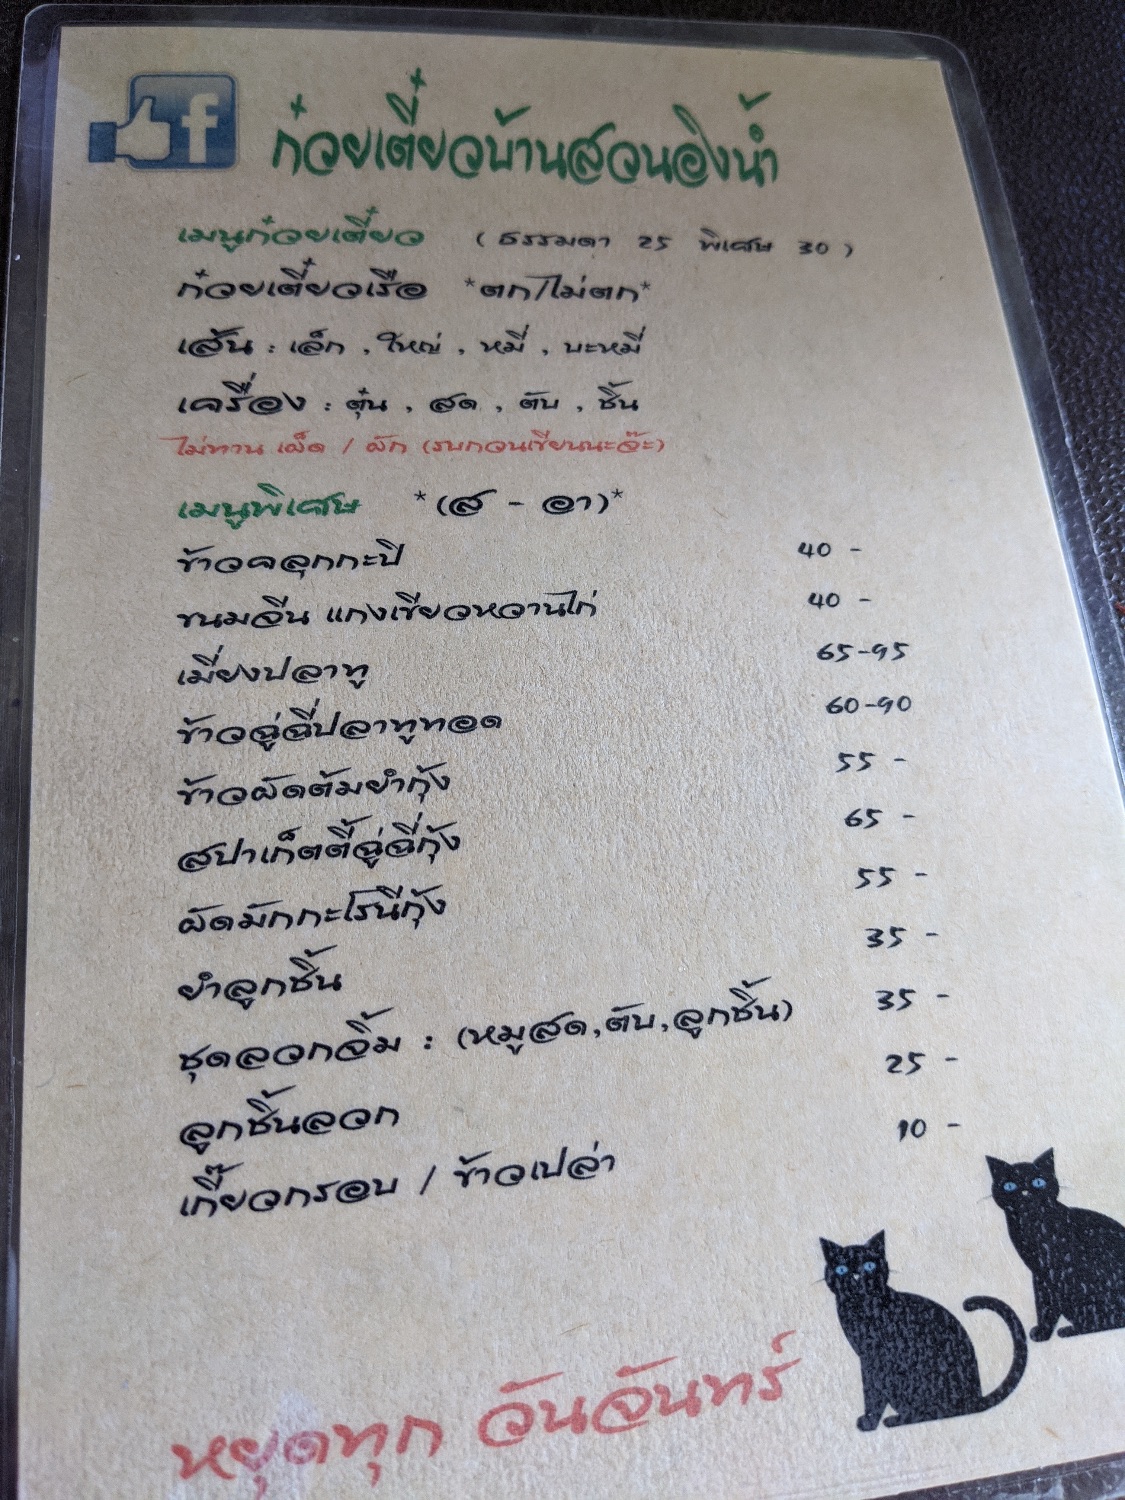 f
ก๋วยเตี๋ยวบ้านสวนอิงน้ำ
เมนูก๋วยเตี๋ยว ( ธรรมดา 25 พิเศษ 30 )
ก๋วยเตี๋ยวเรือ *ตก/ไม่ตก*
เส้น : เล็ก , ใหญ่ , หมี่ , บะหมี่
เครื่อง : ตุ๋น , สด , ตับ , ชิ้น
ไม่ทาน เผ็ด / ผัก (รบกวนเขียนนะจ๊ะ)
เมนูพิเศษ *(ส - อา)*
ข้าวคลุกกะปิ 40 -
ขนมจีน แกงเขียวหวานไก่ 40 -
เมี่ยงปลาทู 65-95
ข้าวฉู่ฉี่ปลาทูทอด 60-90
ข้าวผัดต้มยำกุ้ง 55 -
สปาเก็ตตี้ฉู่ฉี่กุ้ง 65 -
ผัดมักกะโรนีกุ้ง 55 -
ยำลูกชิ้น 35 -
ชุดลวกจิ้ม : (หมูสด,ตับ,ลูกชิ้น) 35 -
ลูกชิ้นลวก 25 -
เกี๊ยวกรอบ / ข้าวเปล่า 10 -
หยุดทุก วันจันทร์